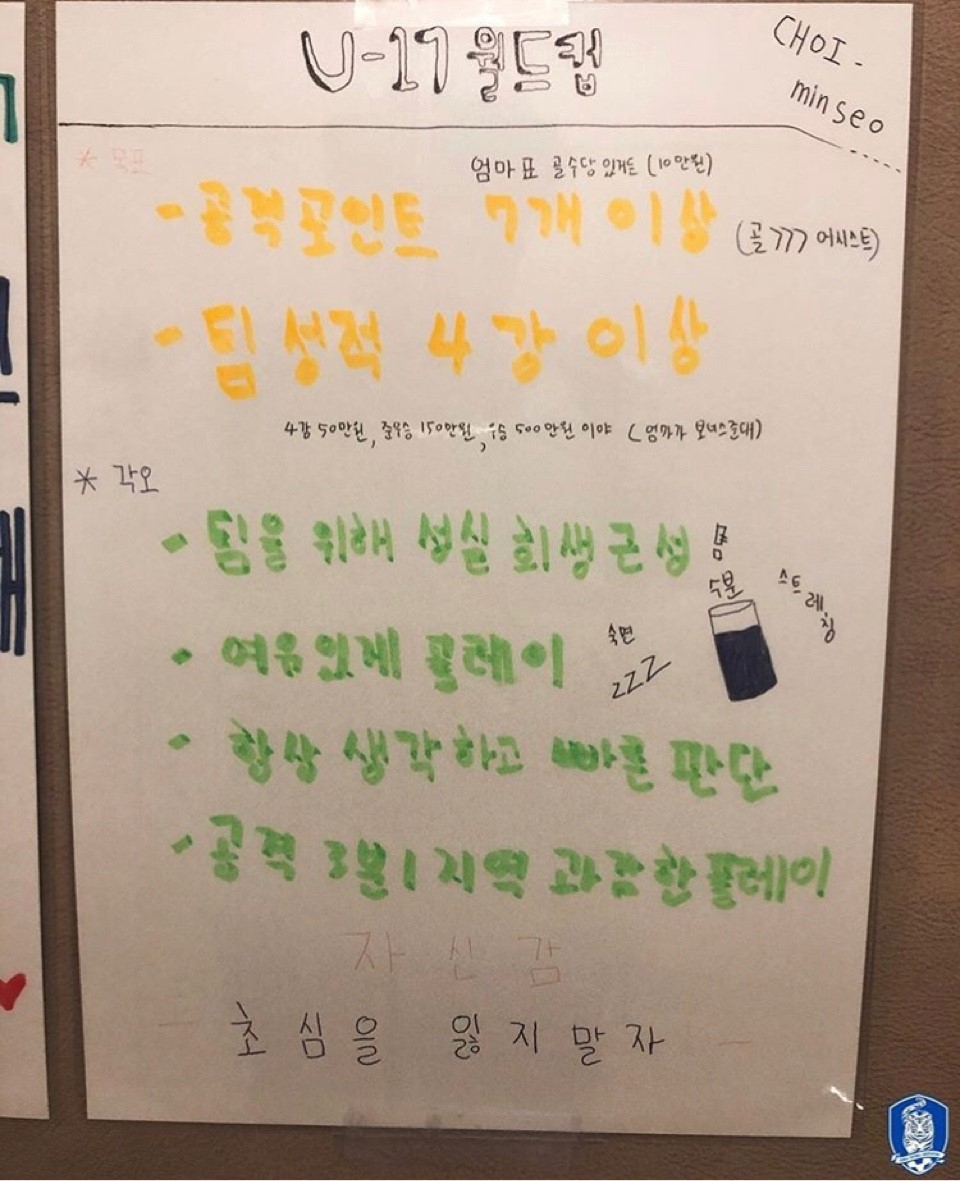 U-17 월드컵
CHOI-
minseo
* 목표
엄마표 골수당 있거든 (10만원)
- 공격포인트 7개 이상 (골 >>> 어시스트)
- 팀 성적 4강 이상
4강 50만원, 준우승 150만원, 우승 500만원 이야 (엄마가 보너스준대)
* 각오
- 팀을 위해 성실 희생 근성
몸
수분
스트레칭
- 여유있게 플레이
숙면
zzz
- 항상 생각하고 빠른 판단
- 공격 3분1 지역 과감한 플레이
자신감
- 초심을 잃지 말자 -